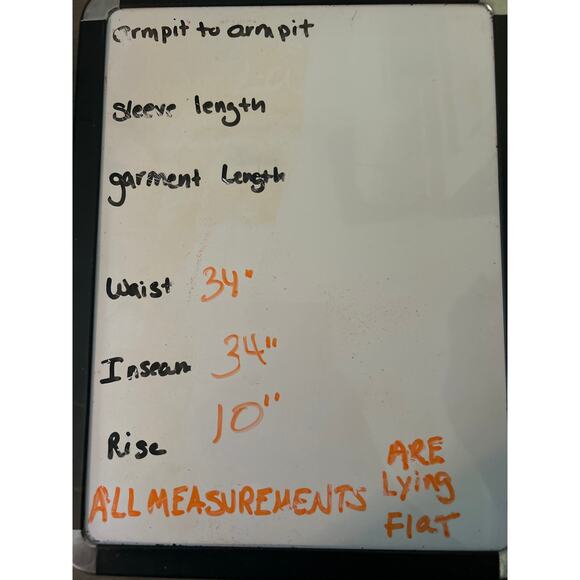 armpit to armpit
Sleeve length
garment Length
Waist 34"
Inseam 34"
Rise 10"
ALL MEASUREMENTS ARE
Lying
Flat